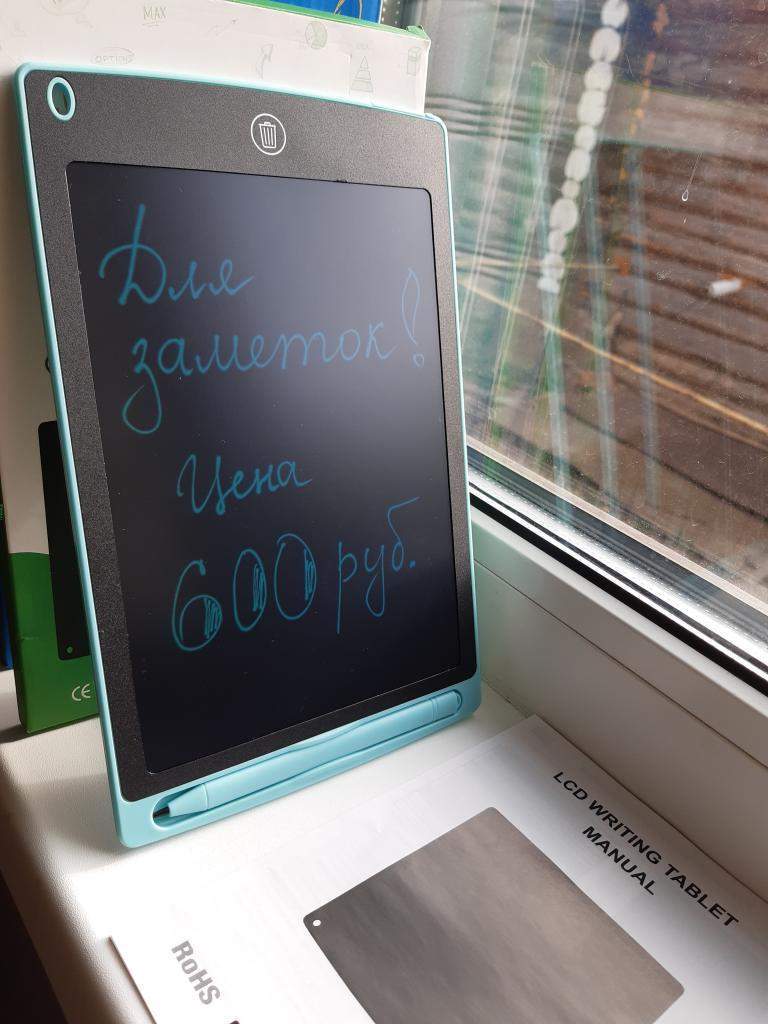 MAX
OPTION
Для
заметок!
Цена
600 руб.
CE
LCD WRITING TABLET
MANUAL
RoHS